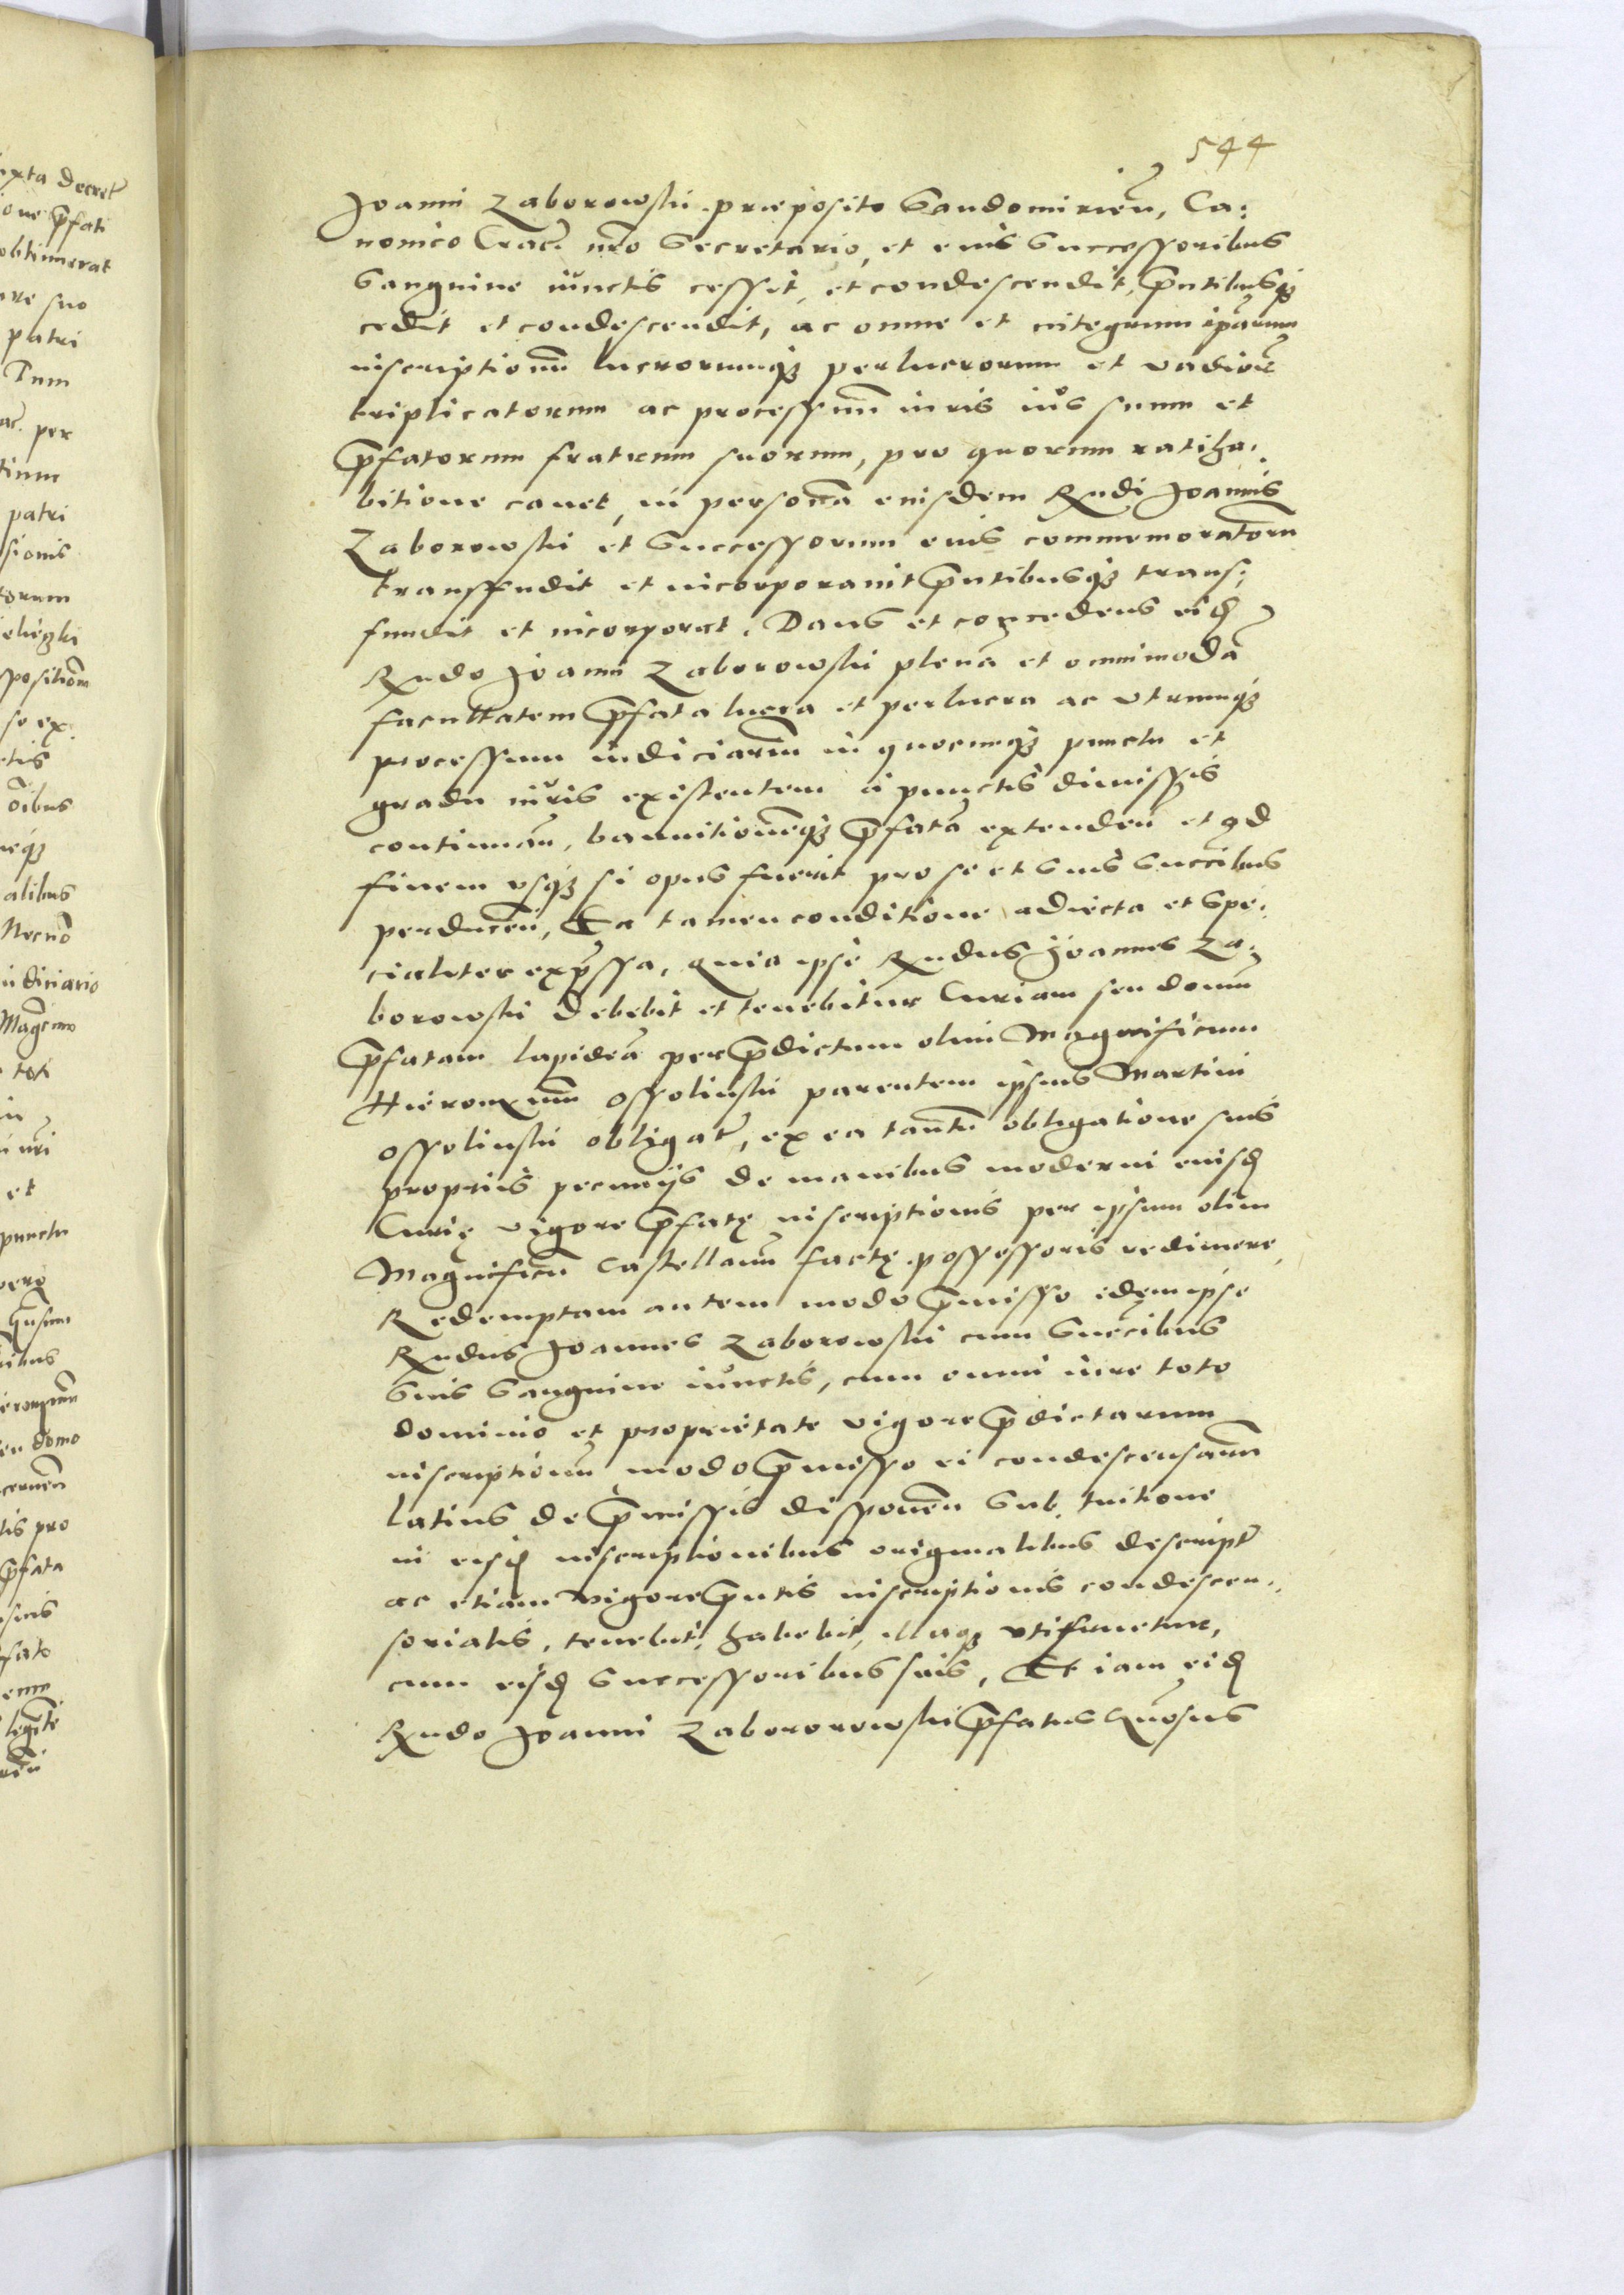 544
Joanni Zaborowski præposito Sandomirieñ, Ca:
nonico Crac. nr̃o Secretario, et eius Successoribus
Sanguine iunctis cessit, et condescendit, p̃ntibusq3
cedit et condescendit, ac omne et integrum ip̃arum
inscriptionũ lucrorumq3 perlucrorum et vadiorũ
triplicatorum ac processuũ iuris ius suum et
p̃fatorum fratrum suorum, pro quorum ratiha:
bitione cauet, in personã eiusdem Rndi Joannis
Zaborowski et Successorum eius commemoratorũ
transfudit et incorporauit p̃ntibusq3 trans:
fundit et incorporat. Dans et concedens eid
Rndo Joanni Zaborowski plenã et omnimodã
facultatem p̃fata lucra et perlucra ac utrumq3
processum iudiciariũ in quocunq3 punctu et
gradu iuris existentem à punctis dimissis
continuañ, bannitionẽq3 p̃fatã extendeñ et ad
finem vsq3 si opus fuerit pro se et suis Succr̃ibus
perduceñ, Ea tamen conditione adiecta et Spe:
cialiter exp̃ssa, quia ipse Rndus Joannes Za:
borowski debebit et tenebitur Curiam seu domũ
p̃fatam lapideã per p̃dictum olim Magnificum
Hieronymũ Ossolinski parentem ipsius Martini
Ossolinski obligat, ex ea tantũ obligatione suis
proprijs pecunijs de manibus moderni eiusd
Curię vigore p̃fatę inscriptionis per ipsum olim
Magnificũ Castellanũ factę possessoris redimere,
Redemptam autem modo p̃misso idem ipse
Rndus Joannes Zaborowski cum Succr̃ibus
Suis Sanguine iunctis, cum omni iure toto
dominio et proprietate vigore p̃dictarum
inscriptionũ modo p̃misso ei condescensarũ
latius de p̃missis disponeñ Sub tuitione
in eisd inscriptionibus originalibus descript
ac etiam vigore p̃ntis inscriptionis condescen:
sorialis, tenebit, habebit, illaq3 utifruetur,
cum eisd Successoribus suis, Et iam eid
Rndo Joanni Zabororowski p̃fatus Gñosus